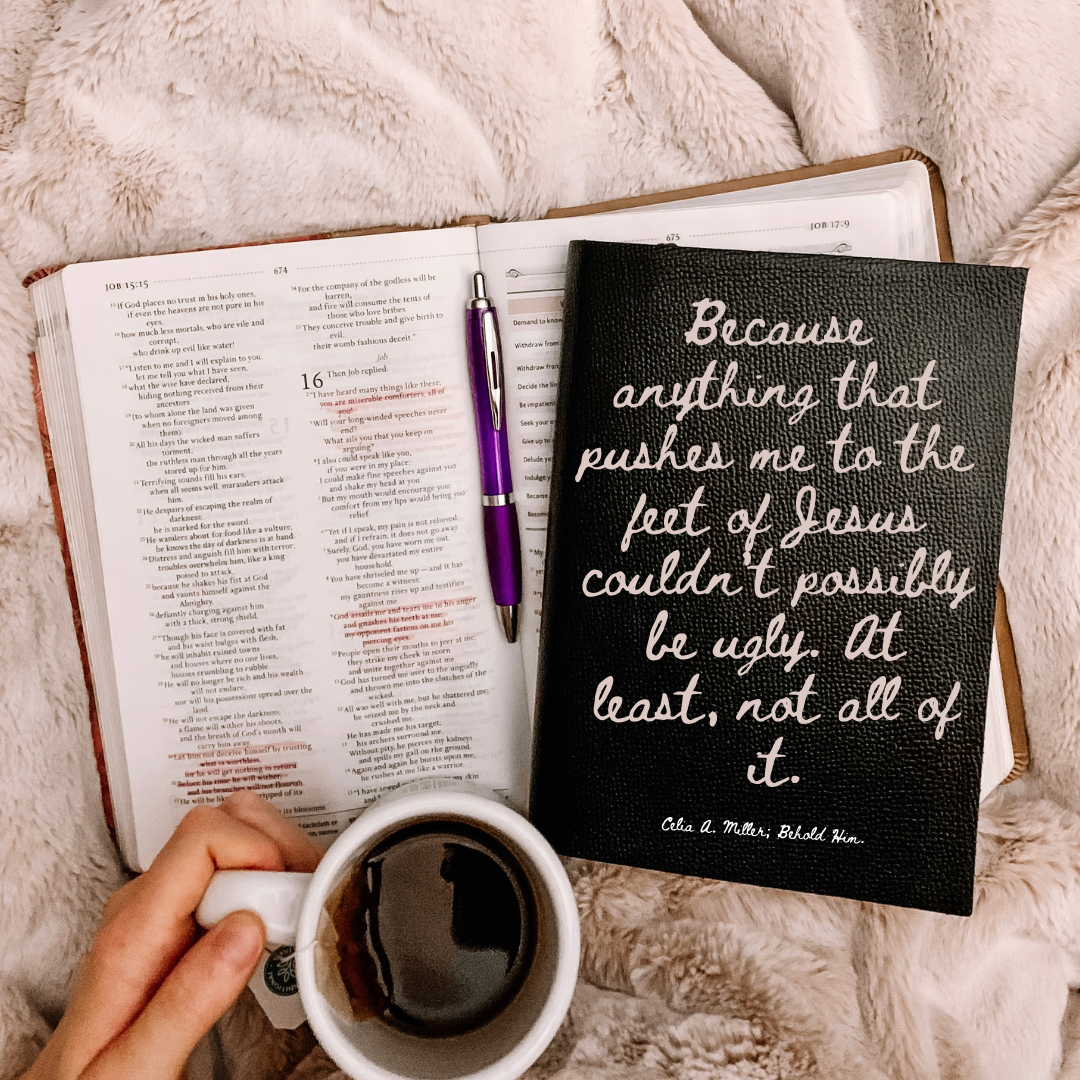 JOB 15:15
674
¹⁵If God places no trust in his holy ones,
if even the heavens are not pure in his
eyes,
¹⁶how much less mortals, who are vile and
corrupt,
who drink up evil like water!
¹⁷"Listen to me and I will explain to you;
let me tell you what I have seen,
¹⁸what the wise have declared,
hiding nothing received from their
ancestors
¹⁹(to whom alone the land was given
when no foreigners moved among
them):
²⁰All his days the wicked man suffers
torment,
the ruthless man through all the years
stored up for him.
²¹Terrifying sounds fill his ears;
when all seems well, marauders attack
him.
²²He despairs of escaping the realm of
darkness;
he is marked for the sword.
²³He wanders about for food like a vulture;
he knows the day of darkness is at hand.
²⁴Distress and anguish fill him with terror;
troubles overwhelm him, like a king
poised to attack,
²⁵because he shakes his fist at God
and vaunts himself against the
Almighty,
²⁶defiantly charging against him
with a thick, strong shield.
²⁷"Though his face is covered with fat
and his waist bulges with flesh,
²⁸he will inhabit ruined towns
and houses where no one lives,
houses crumbling to rubble.
²⁹He will no longer be rich and his wealth
will not endure,
nor will his possessions spread over the
land.
³⁰He will not escape the darkness;
a flame will wither his shoots,
and the breath of God's mouth will
carry him away.
³¹Let him not deceive himself by trusting
what is worthless,
for he will get nothing in return
³²Before his time he will wither,
and his branches will not flourish
³³He will be like stripped of its
its blossoms
³⁴For the company of the godless will be
barren,
and fire will consume the tents of
those who love bribes.
³⁵They conceive trouble and give birth to
evil;
their womb fashions deceit."
Job
16 Then Job replied:
²"I have heard many things like these;
you are miserable comforters, all of
you!
³Will your long-winded speeches never
end?
What ails you that you keep on
arguing?
⁴I also could speak like you,
if you were in my place;
I could make fine speeches against you
and shake my head at you.
⁵But my mouth would encourage you;
comfort from my lips would bring you
relief.
⁶"Yet if I speak, my pain is not relieved;
and if I refrain, it does not go away.
⁷Surely, God, you have worn me out;
you have devastated my entire
household.
⁸You have shriveled me up — and it has
become a witness;
my gauntness rises up and testifies
against me.
⁹God assails me and tears me in his anger
and gnashes his teeth at me;
my opponent fastens on me his
piercing eyes.
¹⁰People open their mouths to jeer at me;
they strike my cheek in scorn
and unite together against me.
¹¹God has turned me over to the ungodly
and thrown me into the clutches of the
wicked.
¹²All was well with me, but he shattered me;
he seized me by the neck and
crushed me.
He has made me his target;
¹³his archers surround me.
Without pity, he pierces my kidneys
and spills my gall on the ground.
¹⁴Again and again he bursts upon me;
he rushes at me like a warrior.
¹⁵"I have sewed my skin
675
JOB 17:9
Demand to know
Withdraw from
Withdraw from
Decide the
Be impatient
Seek your
Give up
Delude
Indulge
Become
Become
Because
anything that
pushes me to the
feet of Jesus
couldn't possibly
be ugly. At
least, not all of
it.
Celia A. Miller; Behold Him.